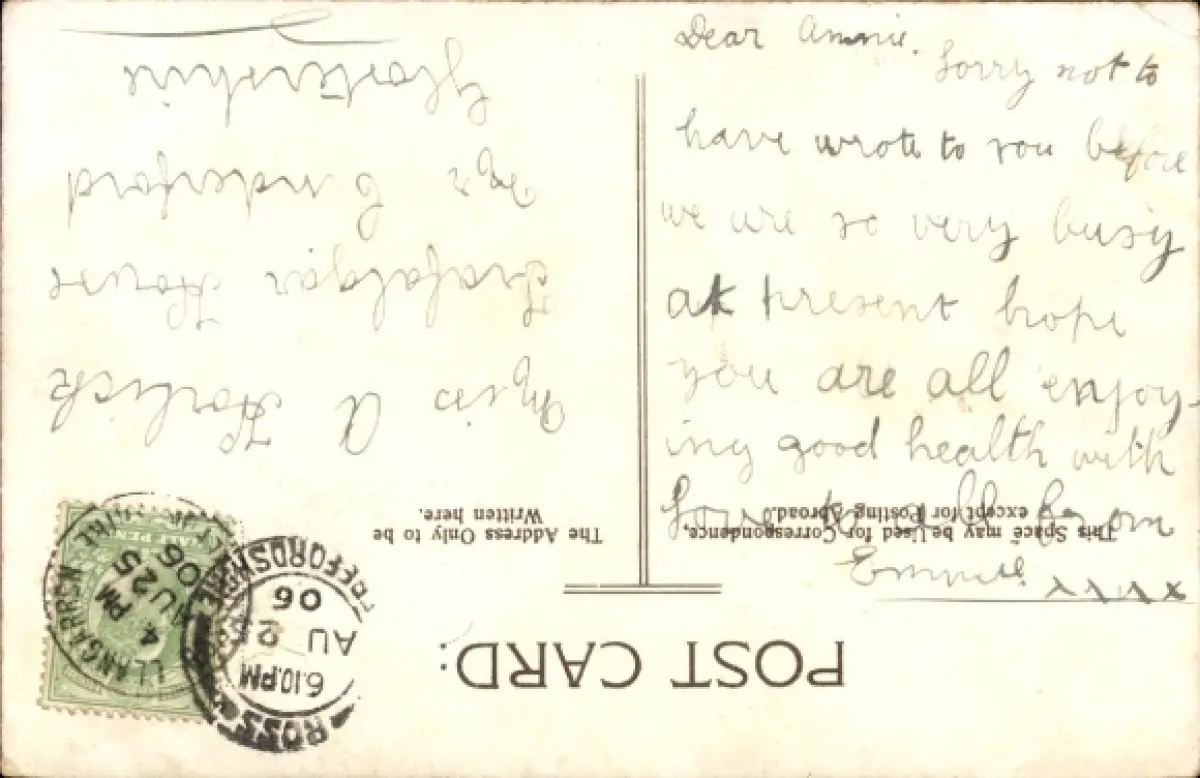 Dear Annie.
Sorry not to
have wrote to you before
we are so very busy
at present hope
you are all enjoy-
ing good health with
Love to all from
Emmie xxxx
POST CARD:
This Space may be Used for Correspondence,
except for Posting Abroad.
The Address Only to be
Written here.
Miss A
Trafalgar House
Nr Cinderford
Glostershire
LLANGARRON
4 PM
AU 25
06
ROSS
6.10.PM
AU 25
06